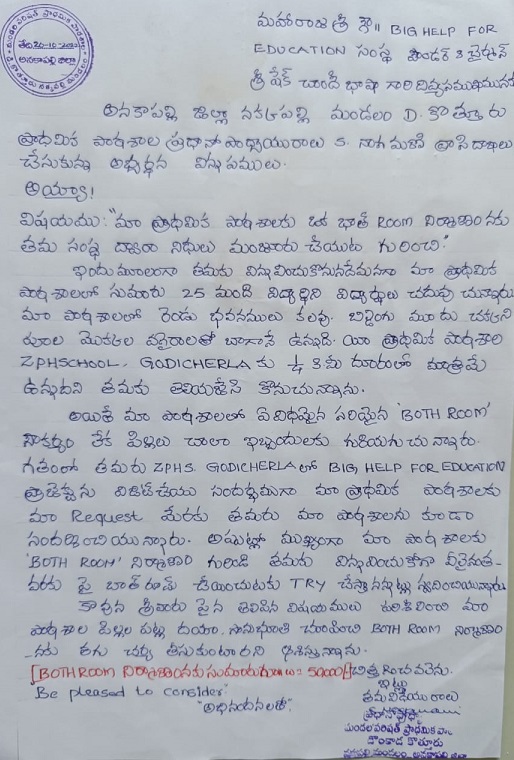 తేది 20-10-2023
అనకాపల్లి జిల్లా
మహారాజశ్రీ గౌ॥ BIG HELP FOR
EDUCATION సంస్థ ఫౌండర్ & చైర్మాన్
శ్రీ షేక్ చాంద్ భాషా గారి దివ్యసముఖమునకు
అనకాపల్లి జిల్లా నక్కపల్లి మండలం D. కొత్తూరు
ప్రాధమిక పాఠశాల ప్రధానోపాధ్యాయురాలు S. నాగమణి వ్రాసి దాఖలు
చేసుకున్న అభ్యర్థన విన్నపములు.
అయ్యా!
విషయము: "మా ప్రాధమిక పాఠశాలకు ఒక భాత్ ROOM నిర్మాణంనకు
తమ సంస్థ ద్వారా నిధులు మంజూరు చేయుట గురించి."
ఇందుమూలంగా తమకు విన్నవించుకొనునదేమనగా మా ప్రాధమిక
పాఠశాలలో సుమారు 25 మంది విద్యార్థిని విద్యార్థులు చదువుచున్నారు.
మా పాఠశాలలో రెండు భవనములు కలవు. బిల్డింగు మూడు చక్కని
పూల మొక్కల వగైరాలతో బాగానే ఉన్నది. యీ ప్రాధమిక పాఠశాల
ZPHSCHOOL, GODICHERLA కు కి మీ దూరంలో మాత్రమే
ఉన్నదని తమకు తెలియజేసి కొనుచున్నాను.
అయితే మా పాఠశాలలో ఏవిధమైన సరియైన 'BOTH ROOM'
సౌకర్యం లేక పిల్లలు చాలా ఇబ్బందులకు గురియగుచున్నారు.
గతంలో తమరు ZPHS. GODICHERLA లో BIG HELP FOR EDUCATION
ప్రాజెక్టును విజిట్ చేయు సందర్భముగా మా ప్రాధమిక పాఠశాలకు
మా Request మేరకు తమరు మా పాఠశాలను కూడా
సందర్శించియున్నారు. అప్పట్లో ముఖ్యంగా మా పాఠశాలకు
'BOTH ROOM' నిర్మాణం గురించి తమకు విన్నవించుకోగా వీలైనంత-
వరకు పై బాత్ రూమ్ చేయించుటకు TRY చేస్తానన్నట్లు స్పందించియున్నారు.
కావున శ్రీవారు పైన తెలిపిన విషయములు పరిశీలించి మా
పాఠశాల పిల్లల పట్ల దయా, సానుభూతి చూపించి BOTH ROOM నిర్మాణం-
నకు తగు చర్య తీసుకుంటారని ఆశిస్తున్నాను.
[BOTH ROOM నిర్మాణంనకు సుమారుగా = 50000/-] చిత్తగించవలెను.
Be pleased to consider.
"అభినందనలతో"
ఇట్లు
తమ విధేయురాలు
మండల పరిషత్ ప్రాధమిక పా.
దొంకాడ కొత్తూరు
నక్కపల్లి మండలం, అనకాపల్లి జిల్లా